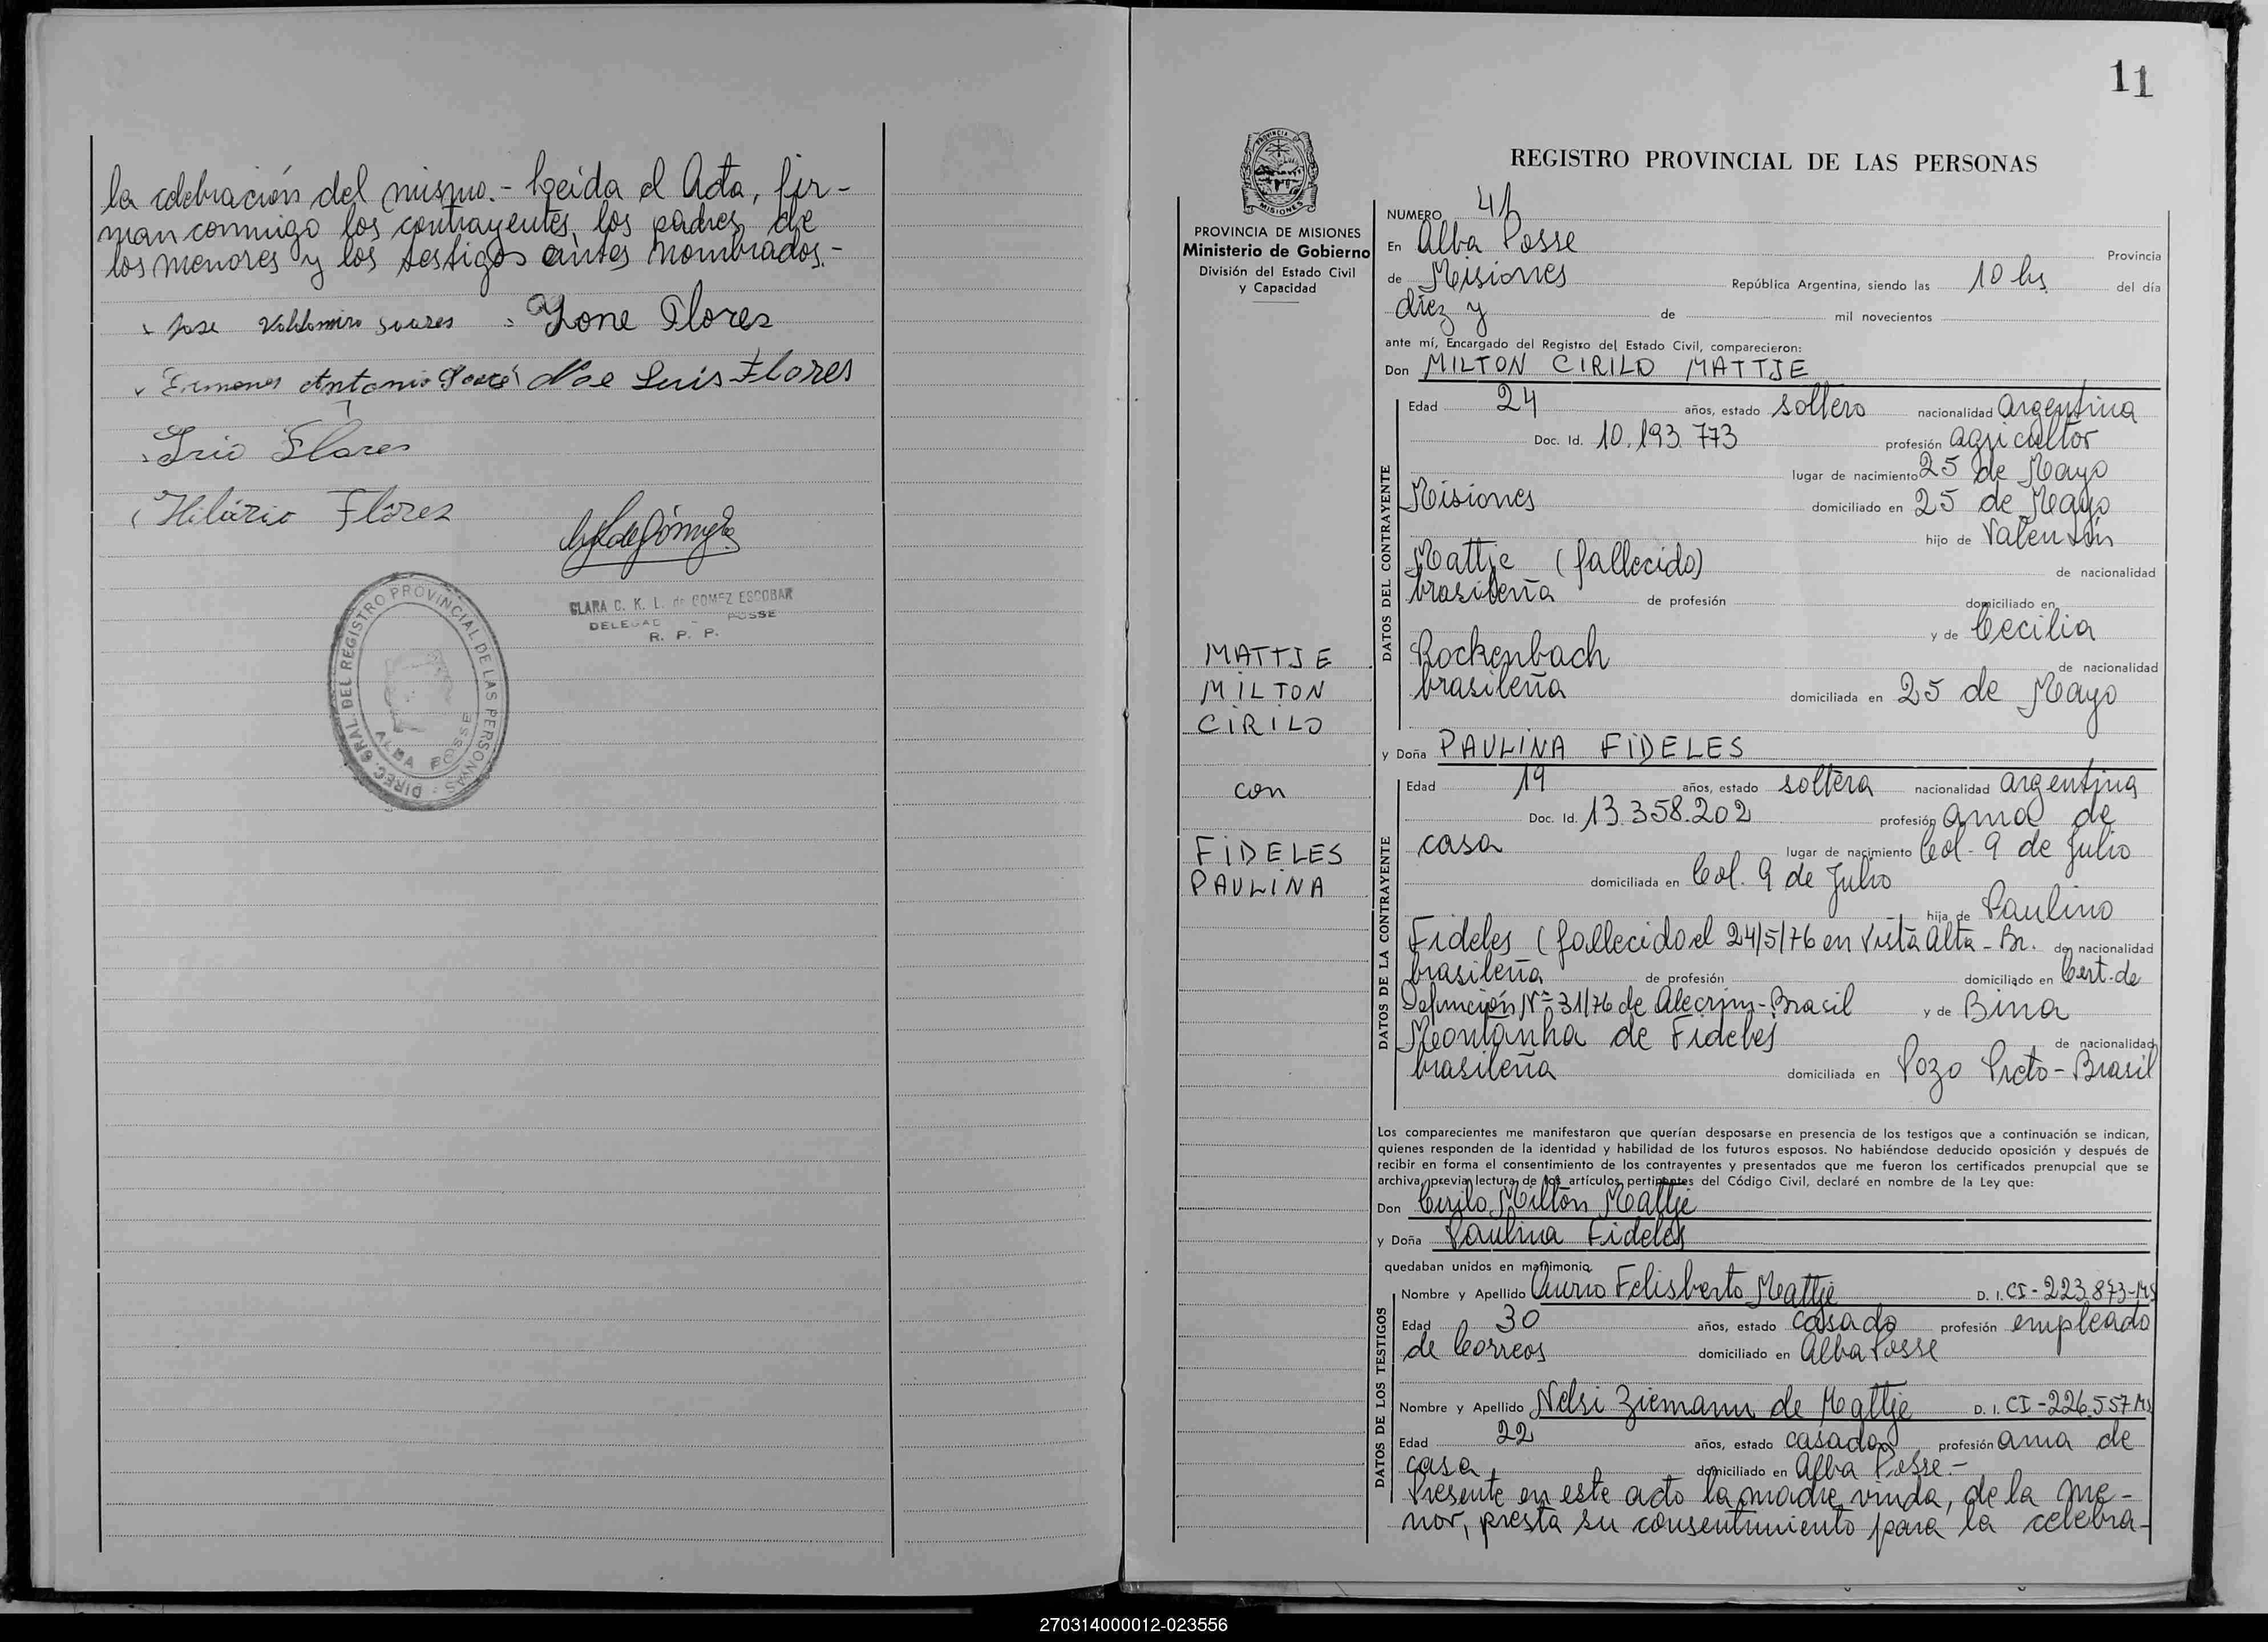 la celebración del mismo.- Leída el Acta, fir-
man conmigo los contrayentes, los padres de
los menores y los testigos antes nombrados.-
Jose Valdomiro Suares
Yone Flores
Antonio
Noe Luis Flores
Irio Flores
Hilário Flores
CLARA C. K. L. de GOMEZ ESCOBAR
POSSE
R. P. P.
DIREC. GRAL. DEL REGISTRO PROVINCIAL DE LAS PERSONAS
ALBA POSSE
11
MISIONES
PROVINCIA DE MISIONES
Ministerio de Gobierno
División del Estado Civil
y Capacidad
MATTJE
MILTON
CIRILO
con
FIDELES
PAULINA
REGISTRO PROVINCIAL DE LAS PERSONAS
NUMERO
En Alba Posse Provincia
de Misiones República Argentina, siendo las 10 hs. del día
diez y de mil novecientos
ante mí, Encargado del Registro del Estado Civil, comparecieron:
Don MILTON CIRILO MATTJE
DATOS DEL CONTRAYENTE
Edad 24 años, estado soltero nacionalidad argentina
Doc. Id. 10.193.773 profesión agricultor
lugar de nacimiento 25 de Mayo
Misiones domiciliado en 25 de Mayo
hijo de Valentín
Mattje (fallecido) de nacionalidad
brasileña de profesión domiciliado en
y de Cecilia
Rockenbach de nacionalidad
brasileña domiciliada en 25 de Mayo
y Doña PAULINA FIDELES
DATOS DE LA CONTRAYENTE
Edad 19 años, estado soltera nacionalidad argentina
Doc. Id. 13.358.202 profesión ama de
casa lugar de nacimiento Col. 9 de Julio
domiciliada en Col. 9 de Julio
hija de Paulino
Fideles (fallecido el 24/5/76 en Vista Alta - Br. de nacionalidad
brasileña de profesión domiciliado en Cert. de
Defunción Nº 31/76 de Alecrim-Brasil y de Bina
Montanha de Fideles de nacionalidad
brasileña domiciliada en Pozo Preto-Brasil
Los comparecientes me manifestaron que querían desposarse en presencia de los testigos que a continuación se indican,
quienes responden de la identidad y habilidad de los futuros esposos. No habiéndose deducido oposición y después de
recibir en forma el consentimiento de los contrayentes y presentados que me fueron los certificados prenupcial que se
archiva, previa lectura de los artículos pertinentes del Código Civil, declaré en nombre de la Ley que:
Don Cirilo Milton Mattje
y Doña Paulina Fideles
quedaban unidos en matrimonio.
DATOS DE LOS TESTIGOS
Nombre y Apellido Felisberto Mattje D. I. CI-223.873-Ms
Edad 30 años, estado casado profesión empleado
de Correos domiciliado en Alba Posse
Nombre y Apellido Nelsi Ziemann de Mattje D. I. CI-226.557 Ms
Edad 22 años, estado casada profesión ama de
casa domiciliado en Alba Posse.-
Presente en este acto la madre viuda, de la me-
nor, presta su consentimiento para la celebra-
270314000012-023556